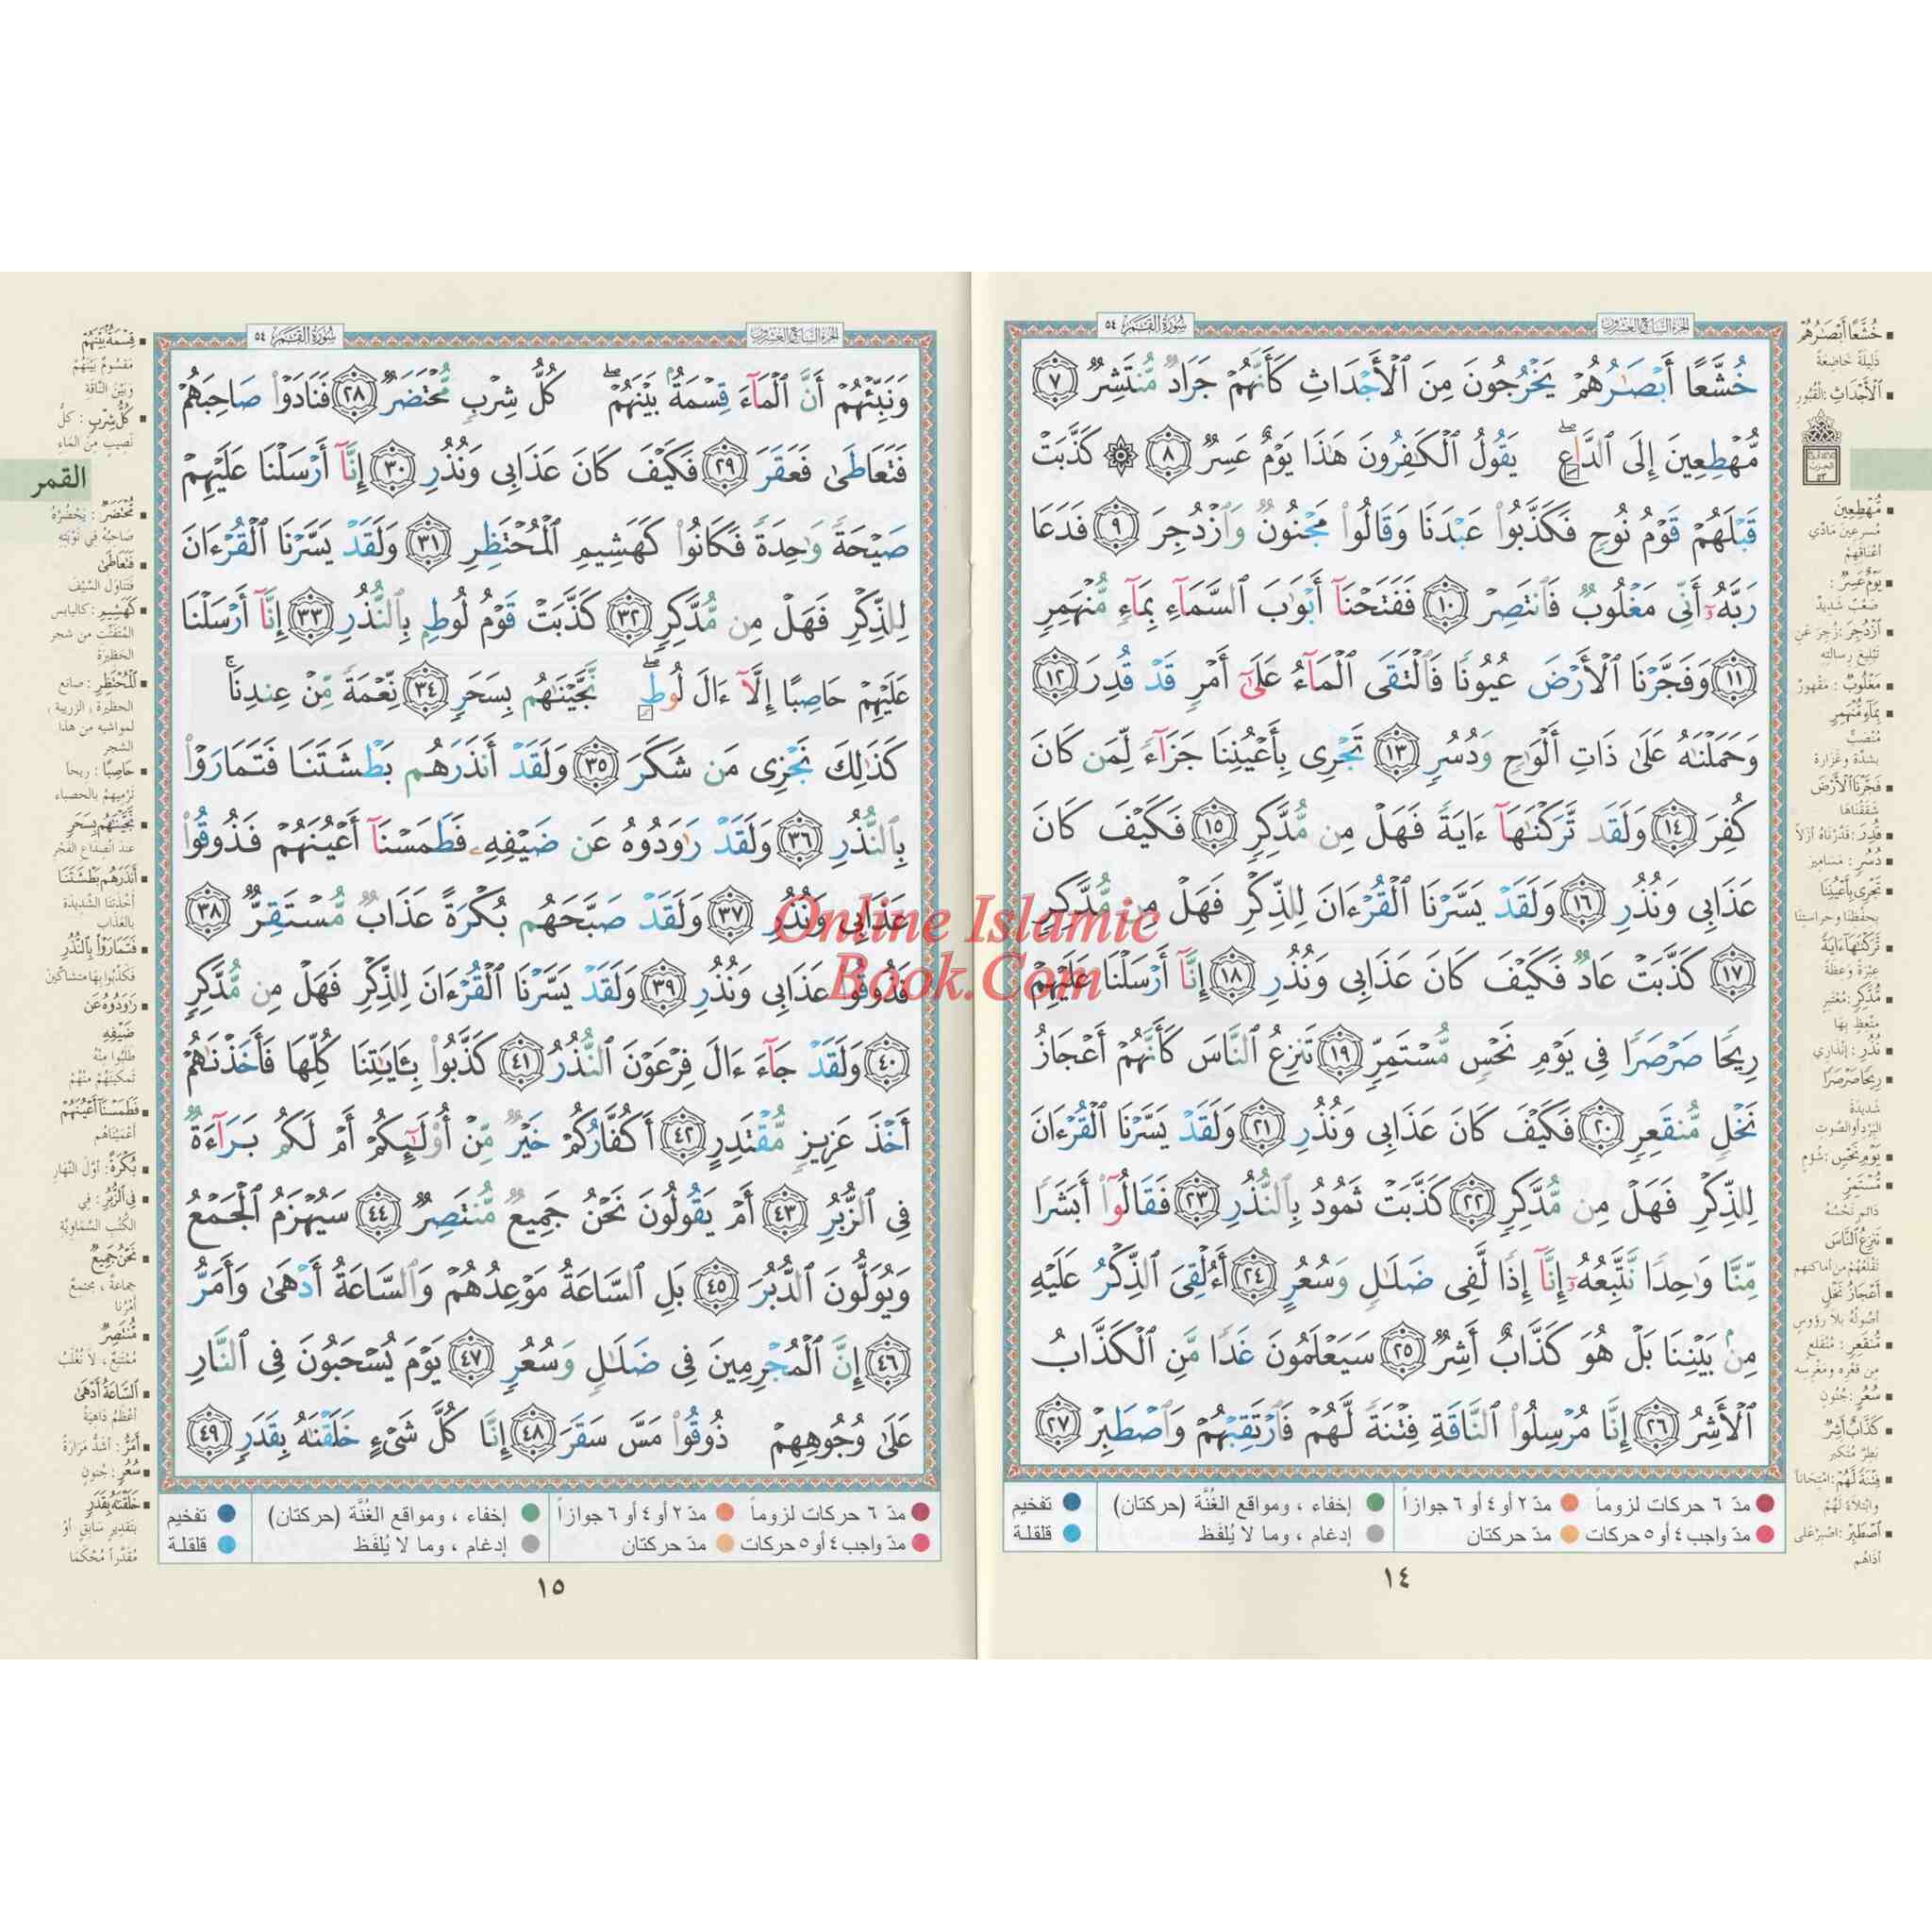 الجزء السابع والعشرون
سورة القمر ٥٤
خُشَّعًا أَبْصَٰرُهُمْ يَخْرُجُونَ مِنَ ٱلْأَجْدَاثِ كَأَنَّهُمْ جَرَادٌ مُّنتَشِرٌ ٧
مُّهْطِعِينَ إِلَى ٱلدَّاعِ ۖ يَقُولُ ٱلْكَٰفِرُونَ هَٰذَا يَوْمٌ عَسِرٌ ٨ ۞ كَذَّبَتْ
قَبْلَهُمْ قَوْمُ نُوحٍ فَكَذَّبُوا۟ عَبْدَنَا وَقَالُوا۟ مَجْنُونٌ وَٱزْدُجِرَ ٩ فَدَعَا
رَبَّهُۥٓ أَنِّى مَغْلُوبٌ فَٱنتَصِرْ ١٠ فَفَتَحْنَآ أَبْوَٰبَ ٱلسَّمَآءِ بِمَآءٍ مُّنْهَمِرٍ
١١ وَفَجَّرْنَا ٱلْأَرْضَ عُيُونًا فَٱلْتَقَى ٱلْمَآءُ عَلَىٰٓ أَمْرٍ قَدْ قُدِرَ ١٢
وَحَمَلْنَٰهُ عَلَىٰ ذَاتِ أَلْوَٰحٍ وَدُسُرٍ ١٣ تَجْرِى بِأَعْيُنِنَا جَزَآءً لِّمَن كَانَ
كُفِرَ ١٤ وَلَقَد تَّرَكْنَٰهَآ ءَايَةً فَهَلْ مِن مُّدَّكِرٍ ١٥ فَكَيْفَ كَانَ
عَذَابِى وَنُذُرِ ١٦ وَلَقَدْ يَسَّرْنَا ٱلْقُرْءَانَ لِلذِّكْرِ فَهَلْ مِن مُّدَّكِرٍ
١٧ كَذَّبَتْ عَادٌ فَكَيْفَ كَانَ عَذَابِى وَنُذُرِ ١٨ إِنَّآ أَرْسَلْنَا عَلَيْهِمْ
رِيحًا صَرْصَرًا فِى يَوْمِ نَحْسٍ مُّسْتَمِرٍّ ١٩ تَنزِعُ ٱلنَّاسَ كَأَنَّهُمْ أَعْجَازُ
نَخْلٍ مُّنقَعِرٍ ٢٠ فَكَيْفَ كَانَ عَذَابِى وَنُذُرِ ٢١ وَلَقَدْ يَسَّرْنَا ٱلْقُرْءَانَ
لِلذِّكْرِ فَهَلْ مِن مُّدَّكِرٍ ٢٢ كَذَّبَتْ ثَمُودُ بِٱلنُّذُرِ ٢٣ فَقَالُوٓا۟ أَبَشَرًا
مِّنَّا وَٰحِدًا نَّتَّبِعُهُۥٓ إِنَّآ إِذًا لَّفِى ضَلَٰلٍ وَسُعُرٍ ٢٤ أَءُلْقِىَ ٱلذِّكْرُ عَلَيْهِ
مِنۢ بَيْنِنَا بَلْ هُوَ كَذَّابٌ أَشِرٌ ٢٥ سَيَعْلَمُونَ غَدًا مَّنِ ٱلْكَذَّابُ
ٱلْأَشِرُ ٢٦ إِنَّا مُرْسِلُوا۟ ٱلنَّاقَةِ فِتْنَةً لَّهُمْ فَٱرْتَقِبْهُمْ وَٱصْطَبِرْ ٢٧
مدّ ٦ حركات لزوماً مدّ ٢ أو ٤ أو ٦ جوازاً إخفاء ، ومواقع الغُنَّة (حركتان) تفخيم
مدّ واجب ٤ أو ٥ حركات مدّ حركتان إدغام ، وما لا يُلفَظ قلقلة
١٤
خُشَّعًا أَبْصَٰرُهُمْ
ذَلِيلَةً خَاضِعَةً
ٱلْأَجْدَاثِ : القُبُورِ
مُّهْطِعِينَ
مُسرِعِينَ مَادِّي
أعْنَاقِهِمْ
يَوْمٌ عَسِرٌ :
صَعْبٌ شَدِيدٌ
ٱزْدُجِرَ : زُجِرَ عَنِ
تَبْلِيغِ رِسالَتِهِ
مَغْلُوبٌ : مَقْهُورٌ
بِمَآءٍ مُّنْهَمِرٍ
مُنْصَبٍّ
بشدَّة وغَزارة
فَجَّرْنَا ٱلْأَرْضَ
شَقَقْنَاهَا
قُدِرَ : قَدَّرْنَاهُ أزَلاً
دُسُرٍ : مَسَامِيرَ
تَجْرِى بِأَعْيُنِنَا
بِحِفْظِنَا وحراستِنا
تَّرَكْنَٰهَآ ءَايَةً
عِبْرَةً وَعِظَةً
مُّدَّكِرٍ : مُعْتَبِرٍ
متَّعِظٍ بِهَا
نُذُرِ : إنْذَارِي
رِيحًا صَرْصَرًا
شَدِيدَةَ
البَرْدِ أو الصَّوتِ
يَوْمِ نَحْسٍ : شُؤْمٍ
مُّسْتَمِرٍّ
دَائِمٍ نَحْسُهُ
تَنزِعُ ٱلنَّاسَ
تَقْلَعُهُمْ من أماكنهم
أَعْجَازُ نَخْلٍ
أصُولُهُ بلا رؤوسٍ
مُّنقَعِرٍ : مُنْقَلِعٍ
مِن قَعْرِه ومَغْرِسِه
سُعُرٍ : جُنُونٍ
كَذَّابٌ أَشِرٌ
بَطِرٌ مُتَكَبِّرٌ
فِتْنَةً لَّهُمْ : امْتِحَاناً
وابْتِلاءً لَهُمْ
ٱصْطَبِرْ : اصْبِرْ عَلى
أذَاهُم
الجزء السابع والعشرون
سورة القمر ٥٤
وَنَبِّئْهُمْ أَنَّ ٱلْمَآءَ قِسْمَةٌۢ بَيْنَهُمْ ۖ كُلُّ شِرْبٍ مُّحْتَضَرٌ ٢٨ فَنَادَوْا۟ صَاحِبَهُمْ
فَتَعَاطَىٰ فَعَقَرَ ٢٩ فَكَيْفَ كَانَ عَذَابِى وَنُذُرِ ٣٠ إِنَّآ أَرْسَلْنَا عَلَيْهِمْ
صَيْحَةً وَٰحِدَةً فَكَانُوا۟ كَهَشِيمِ ٱلْمُحْتَظِرِ ٣١ وَلَقَدْ يَسَّرْنَا ٱلْقُرْءَانَ
لِلذِّكْرِ فَهَلْ مِن مُّدَّكِرٍ ٣٢ كَذَّبَتْ قَوْمُ لُوطٍۭ بِٱلنُّذُرِ ٣٣ إِنَّآ أَرْسَلْنَا
عَلَيْهِمْ حَاصِبًا إِلَّآ ءَالَ لُوطٍ ۖ نَّجَّيْنَٰهُم بِسَحَرٍ ٣٤ نِّعْمَةً مِّنْ عِندِنَا ۚ
كَذَٰلِكَ نَجْزِى مَن شَكَرَ ٣٥ وَلَقَدْ أَنذَرَهُم بَطْشَتَنَا فَتَمَارَوْا۟
بِٱلنُّذُرِ ٣٦ وَلَقَدْ رَٰوَدُوهُ عَن ضَيْفِهِۦ فَطَمَسْنَآ أَعْيُنَهُمْ فَذُوقُوا۟
عَذَابِى وَنُذُرِ ٣٧ وَلَقَدْ صَبَّحَهُم بُكْرَةً عَذَابٌ مُّسْتَقِرٌّ ٣٨
فَذُوقُوا۟ عَذَابِى وَنُذُرِ ٣٩ وَلَقَدْ يَسَّرْنَا ٱلْقُرْءَانَ لِلذِّكْرِ فَهَلْ مِن مُّدَّكِرٍ
٤٠ وَلَقَدْ جَآءَ ءَالَ فِرْعَوْنَ ٱلنُّذُرُ ٤١ كَذَّبُوا۟ بِـَٔايَٰتِنَا كُلِّهَا فَأَخَذْنَٰهُمْ
أَخْذَ عَزِيزٍ مُّقْتَدِرٍ ٤٢ أَكُفَّارُكُمْ خَيْرٌ مِّنْ أُو۟لَٰٓئِكُمْ أَمْ لَكُم بَرَآءَةٌ
فِى ٱلزُّبُرِ ٤٣ أَمْ يَقُولُونَ نَحْنُ جَمِيعٌ مُّنتَصِرٌ ٤٤ سَيُهْزَمُ ٱلْجَمْعُ
وَيُوَلُّونَ ٱلدُّبُرَ ٤٥ بَلِ ٱلسَّاعَةُ مَوْعِدُهُمْ وَٱلسَّاعَةُ أَدْهَىٰ وَأَمَرُّ
٤٦ إِنَّ ٱلْمُجْرِمِينَ فِى ضَلَٰلٍ وَسُعُرٍ ٤٧ يَوْمَ يُسْحَبُونَ فِى ٱلنَّارِ
عَلَىٰ وُجُوهِهِمْ ذُوقُوا۟ مَسَّ سَقَرَ ٤٨ إِنَّا كُلَّ شَىْءٍ خَلَقْنَٰهُ بِقَدَرٍ ٤٩
مدّ ٦ حركات لزوماً مدّ ٢ أو ٤ أو ٦ جوازاً إخفاء ، ومواقع الغُنَّة (حركتان) تفخيم
مدّ واجب ٤ أو ٥ حركات مدّ حركتان إدغام ، وما لا يُلفَظ قلقلة
١٥
قِسْمَةٌۢ بَيْنَهُمْ
مَقسُومٌ بَيْنَهُمْ
وَبَيْنَ النَّاقَةِ
كُلُّ شِرْبٍ : كلُّ
نَصِيبٍ مِنَ المَاءِ
القمر
مُّحْتَضَرٌ : يَحْضُرُهُ
صَاحِبُهُ فِي نَوْبَتِهِ
فَتَعَاطَىٰ
فَتَنَاوَلَ السَّيْفَ
كَهَشِيمِ : كاليابس
المُتَفَتِّت من شجر
الحَظِيرَة
ٱلْمُحْتَظِرِ : صانع
الحظيرة ( الزريبة )
لمواشيه من هذا
الشجر
حَاصِبًا : ريحاً
تَرْمِيهِمْ بالحصباء
نَّجَّيْنَٰهُم بِسَحَرٍ
عندَ انْصِدَاعِ الفَجْرِ
أَنذَرَهُم بَطْشَتَنَا
أَخْذَتَنَا الشَّدِيدَةَ
بالعَذَابِ
فَتَمَارَوْا۟ بِٱلنُّذُرِ
فَكَذَّبُوا بِهَا متشاكِّينَ
رَٰوَدُوهُ عَن
ضَيْفِهِ
طَلَبُوا مِنْهُ
تَمكِينَهُمْ مِنْهُمْ
فَطَمَسْنَآ أَعْيُنَهُمْ
أَعْمَيْنَاهُم
بُكْرَةً : أوَّلَ النَّهَارِ
فِى ٱلزُّبُرِ : فِي
الكُتُبِ السَّمَاوِيَّةِ
نَحْنُ جَمِيعٌ
جماعةٌ ، مجتمعٌ
أمْرُنَا
مُّنتَصِرٌ
مُمْتَنِعٌ ، لا نُغْلَبُ
ٱلسَّاعَةُ أَدْهَىٰ
أعْظَمُ دَاهِيَةً
أَمَرُّ : أشَدُّ مَرَارَةً
سُعُرٍ : جُنُونٍ
خَلَقْنَٰهُ بِقَدَرٍ
بتَقدِيرٍ سَابِقٍ أوْ
مُقَدَّراً مُحْكَمَا
Online Islamic
Book.Com